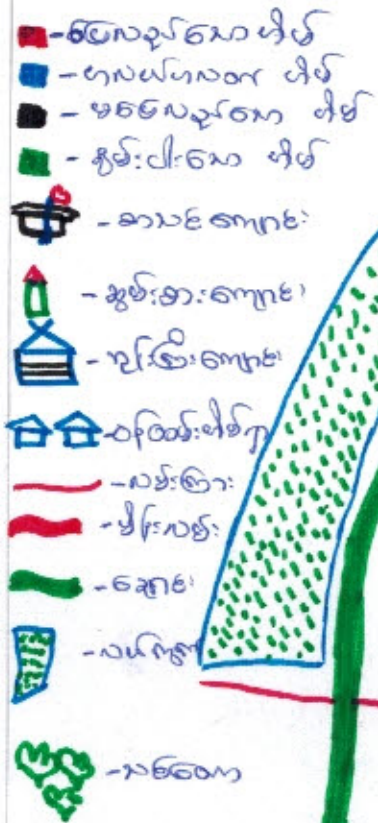 - ပြေလည်သော အိမ်
- အလယ်အလတ် အိမ်
- မပြေလည်သော အိမ်
- နွမ်းပါးသော အိမ်
- စာသင်ကျောင်း
- ဆွမ်းစားကျောင်း
- ဘုန်းကြီးကျောင်း
- ဝန်ထမ်းအိမ်ရာ
- လမ်းကြား
- မိန်းလမ်း
- ချောင်း
- လယ်ကွက်
- သစ်တော